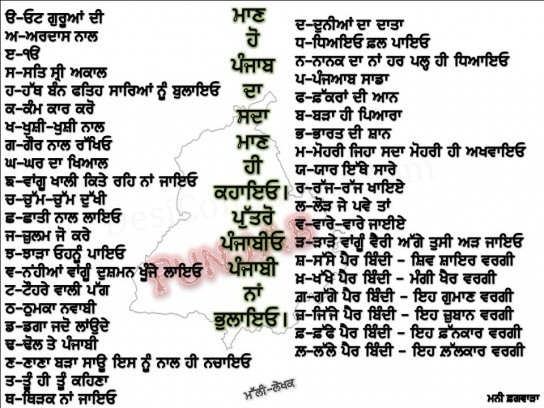 ੳ-ਓਟ ਗੁਰੂਆਂ ਦੀ
ਅ-ਅਰਦਾਸ ਨਾਲ
ੲ-ੴ
ਸ-ਸਤਿ ਸ੍ਰੀ ਅਕਾਲ
ਹ-ਹੱਥ ਬੰਨ ਫਤਿਹ ਸਾਰਿਆਂ ਨੂੰ ਬੁਲਾਇਓ
ਕ-ਕੰਮ ਕਾਰ ਕਰੋ
ਖ-ਖੁਸ਼ੀ-ਖੁਸ਼ੀ ਨਾਲ
ਗ-ਗੌਰ ਨਾਲ ਰੱਖਿਓ
ਘ-ਘਰ ਦਾ ਖਿਆਲ
ਙ-ਵਾਂਗੂ ਖਾਲੀ ਕਿਤੇ ਰਹਿ ਨਾਂ ਜਾਇਓ
ਚ-ਚੁੱਮ-ਚੁੱਮ ਦੁੱਖੀ
ਛ-ਛਾਤੀ ਨਾਲ ਲਾਇਓ
ਜ-ਜੁਲਮ ਜੋ ਕਰੇ
ਝ-ਝਾੜਾ ਓਹਨੂੰ ਪਾਇਓ
ਞ-ਨ੍ਹੀਆਂ ਵਾਂਗੂੰ ਦੁਸ਼ਮਨ ਖੂੰਜੇ ਲਾਇਓ
ਟ-ਟੌਹਰੇ ਵਾਲੀ ਪੱਗ
ਠ-ਠੁਮਕਾ ਨਵਾਬੀ
ਡ-ਡਗਾ ਜਦੋ ਲਾਂਉਦੇ
ਢ-ਢੋਲ ਤੇ ਪੰਜਾਬੀ
ਣ-ਣਾਣਾ ਬੜਾ ਸਾਊ ਇਸ ਨੂੰ ਨਾਲ ਹੀ ਨਚਾਇਓ
ਤ-ਤੂੰ ਹੀ ਤੂੰ ਕਹਿਣਾ
ਥ-ਥਿੜਕ ਨਾਂ ਜਾਇਓ
ਮਾਣ
ਹੋ
ਪੰਜਾਬ
ਦਾ
ਸਦਾ
ਮਾਣ
ਹੀ
ਕਹਾਇਓ।
ਪੁੱਤਰੋ
ਪੰਜਾਬੀਓ
ਪੰਜਾਬੀ
ਨਾਂ
ਭੁਲਾਇਓ।
ਦ-ਦੁਨੀਆਂ ਦਾ ਦਾਤਾ
ਧ-ਧਿਅਇਓ ਫ਼ਲ ਪਾਇਓ
ਨ-ਨਾਨਕ ਦਾ ਨਾਂ ਹਰ ਪਲ੍ਹ ਹੀ ਧਿਆਇਓ
ਪ-ਪੰਜਆਬ ਸਾਡਾ
ਫ-ਫ਼ੱਕਰਾਂ ਦੀ ਆਨ
ਬ-ਬੜਾ ਹੀ ਪਿਆਰਾ
ਭ-ਭਾਰਤ ਦੀ ਸ਼ਾਨ
ਮ-ਮੋਹਰੀ ਜਿਹਾ ਸਦਾ ਮੋਹਰੀ ਹੀ ਅਖਵਾਇਓ
ਯ-ਯਾਰ ਇੱਥੇ ਸਾਰੇ
ਰ-ਰੱਜ-ਰੱਜ ਖਾਇਏ
ਲ-ਲੋੜ ਜੋ ਪਵੇ ਤਾਂ
ਵ-ਵਾਰੇ-ਵਾਰੇ ਜਾਈਏ
ੜ-ੜਾੜੇ ਵਾਂਗੂੰ ਵੈਰੀ ਅੱਗੇ ਤੁਸੀ ਅੜ ਜਾਇਓ
ਸ਼-ਸੱਸੇ ਪੈਰ ਬਿੰਦੀ - ਸ਼ਿਵ ਸ਼ਾਇਰ ਵਰਗੀ
ਖ਼-ਖੱਖੇ ਪੈਰ ਬਿੰਦੀ - ਮੰਗੀ ਖੈਰ ਵਰਗੀ
ਗ਼-ਗੱਗੇ ਪੈਰ ਬਿੰਦੀ - ਇਹ ਗੁਮਾਣ ਵਰਗੀ
ਜ਼-ਜਿੱਜੇ ਪੈਰ ਬਿੰਦੀ - ਇਹ ਜ਼ੁਬਾਨ ਵਰਗੀ
ਫ਼-ਫ਼ੱਫੇ ਪੈਰ ਬਿੰਦੀ - ਇਹ ਫ਼ੱਨਕਾਰ ਵਰਗੀ
ਲ਼-ਲੱਲੇ ਪੈਰ ਬਿੰਦੀ - ਇਹ ਲ਼ੱਲਕਾਰ ਵਰਗੀ
PUNJAB
ਮੱਲੀ-ਲੇਖਕ
ਮਨੀ ਫ਼ਗਵਾੜਾ